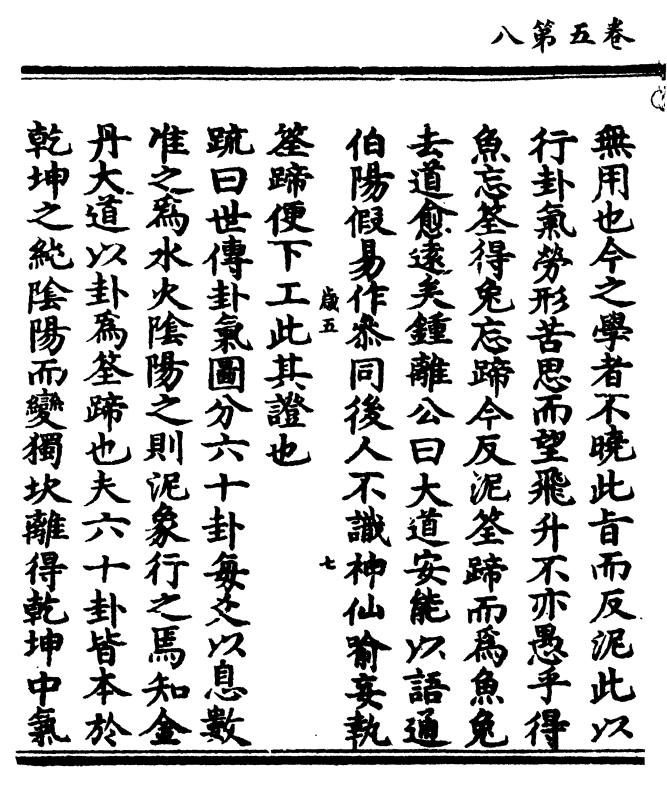 卷五第八
無用也今之學者不曉此旨而反泥此以
行卦氣勞形苦思而望飛升不亦愚乎得
魚忘筌得兔忘蹄今反泥筌蹄而爲魚兔
去道愈遠矣鍾離公曰大道安能以語通
伯陽假易作叅同後人不識神仙喻妄執
歲五
七
筌蹄便下工此其證也
䟽曰世傳卦氣圖分六十卦每爻以息數
准之爲水火陰陽之則泥象行之焉知金
丹大道以卦爲筌蹄也夫六十卦皆本於
乾坤之純陰陽而變獨坎離得乾坤中氣